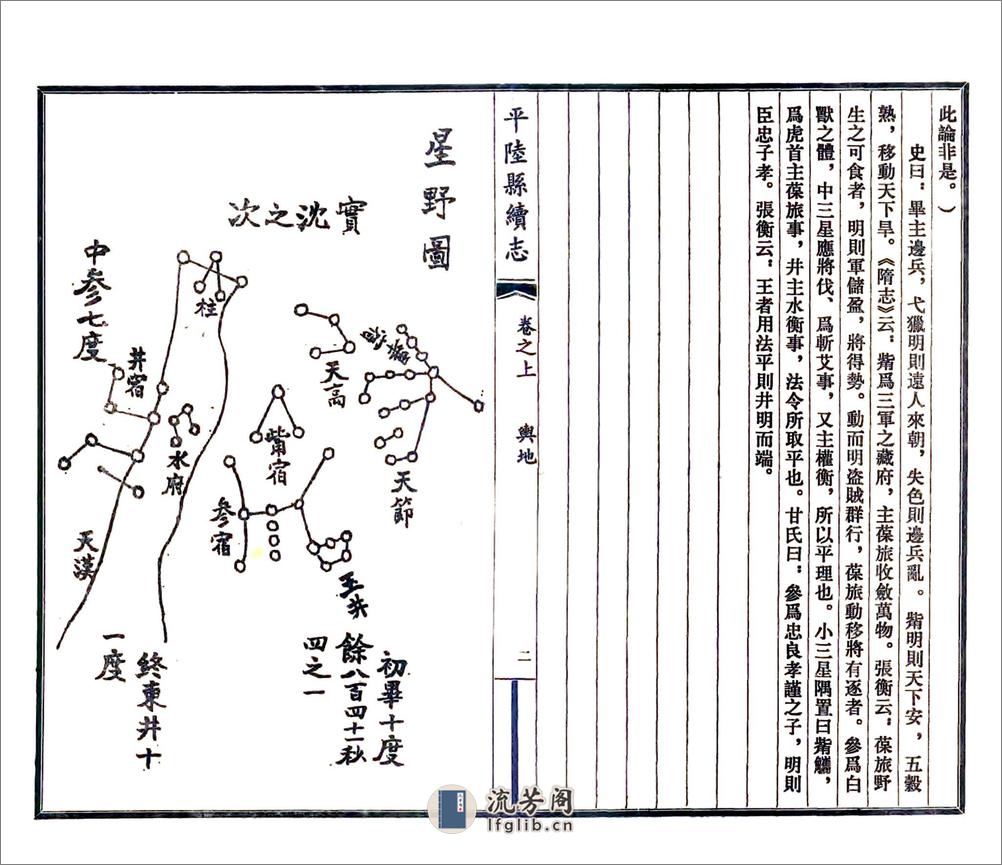 此論非是。）
史曰：畢主邊兵，弋獵明則遠人來朝，失色則邊兵亂。觜明則天下安，五穀
熟，移動天下旱。《隋志》云：觜爲三軍之藏府，主葆旅收斂萬物。張衡云：葆旅野
生之可食者，明則軍儲盈，將得勢。動而明盜賊群行，葆旅動移將有逐者。參爲白
獸之體，中三星應將伐、爲斬艾事，又主權衡，所以平理也。小三星隅置曰觜觿，
爲虎首主葆旅事，井主水衡事，法令所取平也。甘氏曰：參爲忠良孝謹之子，明則
臣忠子孝。張衡云：王者用法平則井明而端。
平陸縣續志
卷之上
輿地
二
星野圖
實沈之次
中參七度
柱
井宿
水府
天漢
天高
畢宿
觜宿
參宿
天節
玉井
初畢十度
餘八百四十一秒
四之一
終東井十
一度
流芳阁
lfglib.cn